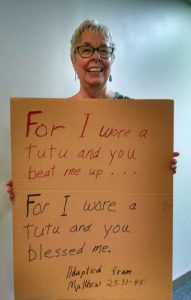 For I wore a
tutu and you
beat me up . . .
For I wore a
tutu and you
blessed me.
Adapted from
Matthew 25:31-45